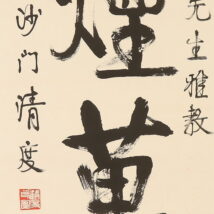 先生雅教
煙
沙门清度